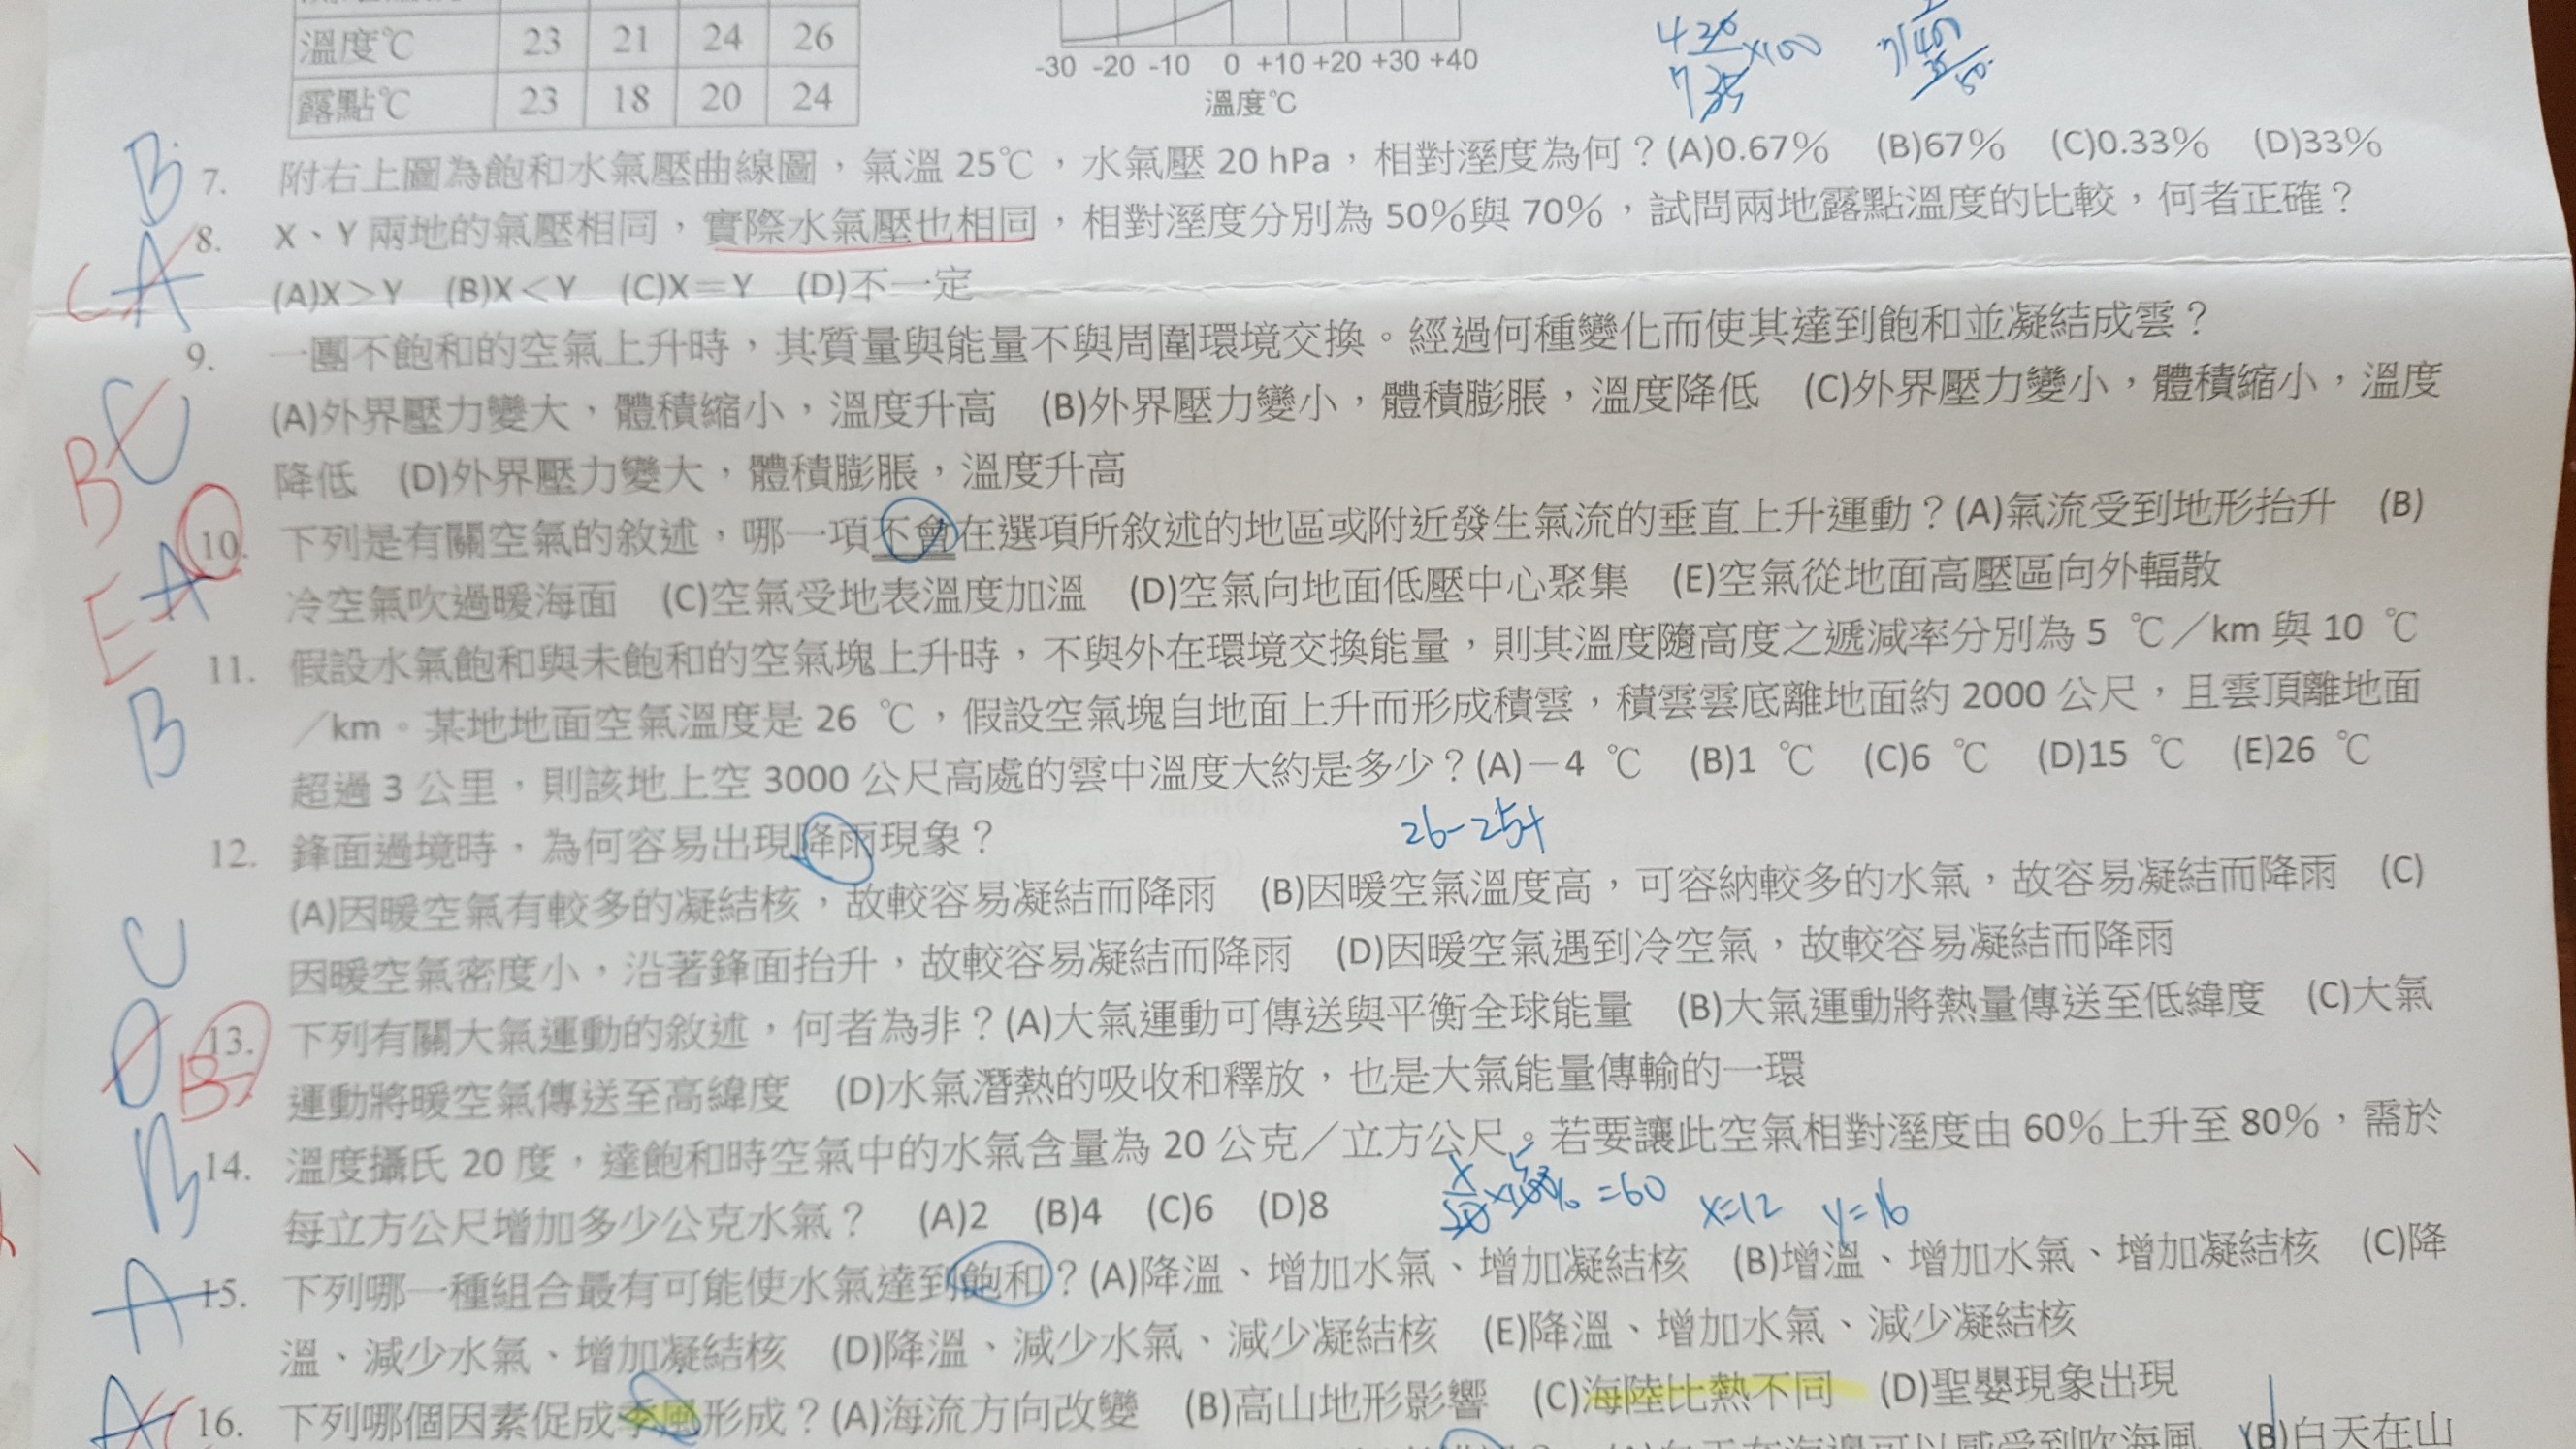 溫度℃ 23 21 24 26
露點℃ 23 18 20 24
-30 -20 -10 0 +10 +20 +30 +40
溫度℃
B 7. 附右上圖為飽和水氣壓曲線圖，氣溫 25℃，水氣壓 20 hPa，相對溼度為何？(A)0.67% (B)67% (C)0.33% (D)33%
8. X、Y 兩地的氣壓相同，實際水氣壓也相同，相對溼度分別為 50%與 70%，試問兩地露點溫度的比較，何者正確？
C A (A)X＞Y (B)X＜Y (C)X＝Y (D)不一定
9. 一團不飽和的空氣上升時，其質量與能量不與周圍環境交換。經過何種變化而使其達到飽和並凝結成雲？
B C (A)外界壓力變大，體積縮小，溫度升高 (B)外界壓力變小，體積膨脹，溫度降低 (C)外界壓力變小，體積縮小，溫度
降低 (D)外界壓力變大，體積膨脹，溫度升高
10. 下列是有關空氣的敘述，哪一項不會在選項所敘述的地區或附近發生氣流的垂直上升運動？(A)氣流受到地形抬升 (B)
E A 冷空氣吹過暖海面 (C)空氣受地表溫度加溫 (D)空氣向地面低壓中心聚集 (E)空氣從地面高壓區向外輻散
11. 假設水氣飽和與未飽和的空氣塊上升時，不與外在環境交換能量，則其溫度隨高度之遞減率分別為 5 ℃／km 與 10 ℃
B ／km。某地地面空氣溫度是 26 ℃，假設空氣塊自地面上升而形成積雲，積雲雲底離地面約 2000 公尺，且雲頂離地面
超過 3 公里，則該地上空 3000 公尺高處的雲中溫度大約是多少？(A)－4 ℃ (B)1 ℃ (C)6 ℃ (D)15 ℃ (E)26 ℃
12. 鋒面過境時，為何容易出現降雨現象？
(A)因暖空氣有較多的凝結核，故較容易凝結而降雨 (B)因暖空氣溫度高，可容納較多的水氣，故容易凝結而降雨 (C)
C 因暖空氣密度小，沿著鋒面抬升，故較容易凝結而降雨 (D)因暖空氣遇到冷空氣，故較容易凝結而降雨
D 13. 下列有關大氣運動的敘述，何者為非？(A)大氣運動可傳送與平衡全球能量 (B)大氣運動將熱量傳送至低緯度 (C)大氣
B 運動將暖空氣傳送至高緯度 (D)水氣潛熱的吸收和釋放，也是大氣能量傳輸的一環
B 14. 溫度攝氏 20 度，達飽和時空氣中的水氣含量為 20 公克／立方公尺。若要讓此空氣相對溼度由 60%上升至 80%，需於
每立方公尺增加多少公克水氣？ (A)2 (B)4 (C)6 (D)8 =60 x=12 y=16
A 15. 下列哪一種組合最有可能使水氣達到飽和？(A)降溫、增加水氣、增加凝結核 (B)增溫、增加水氣、增加凝結核 (C)降
溫、減少水氣、增加凝結核 (D)降溫、減少水氣、減少凝結核 (E)降溫、增加水氣、減少凝結核
A C 16. 下列哪個因素促成季風形成？(A)海流方向改變 (B)高山地形影響 (C)海陸比熱不同 (D)聖嬰現象出現
(B)白天在山